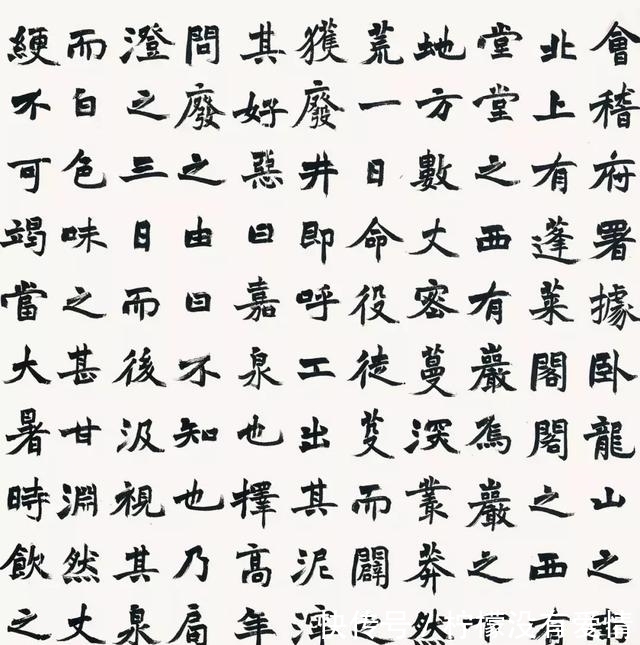 會稽府署據卧龍山之
北上有蓬萊閣閣之西
堂堂之西有巖焉巖之
地方數丈密蔓深叢莽然
荒一日命役徒芟而闢之
獲廢井即呼工出其泥滓
其好惡曰嘉泉也擇高年
問廢之由曰不知也乃扃
澄之三日而後汲視其泉
而白色味之甚甘淵然丈
綆不可竭當大暑時飲之
快传号/柠檬没有爱情